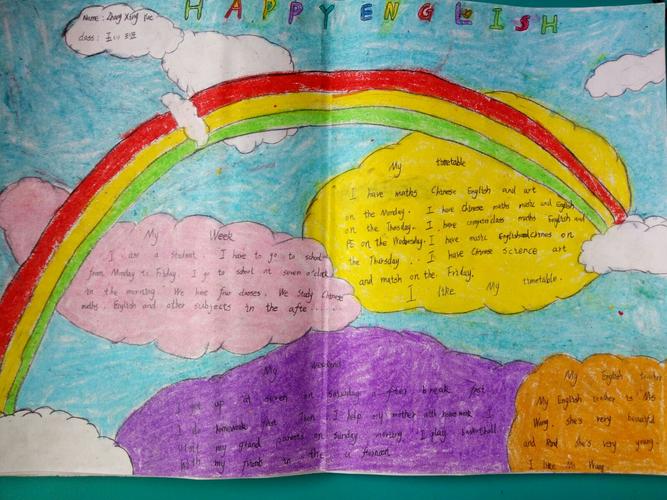 HAPPY ENGLISH
Name: Zhang Xing
class: 五(1)班
My Week
I am a student. I have to go to school
from Monday to Friday. I go to school at seven o'clock
in the morning. We have four classes. We study Chinese
maths. English and other subjects in the afte.....
My timetable
I have maths Chinese English and art
on the Monday. I have Chinese maths music and English
on the Thusday. I have computer class maths English and
PE on the Wednesday. I have music English and Chinese on
the Thursday... I have Chinese science art
and math on the Friday.
I like My timetable.
My Weekend
I get up at seven on saturday after break fast
I do homework Next Then I help my mother with house work I
visit my grand parents on Sunday I play basketball
with my friend in the afternoon
My English teacher
My English teacher is Ms
Wang. she's very beautiful
and she's very young
I like Ms Wang